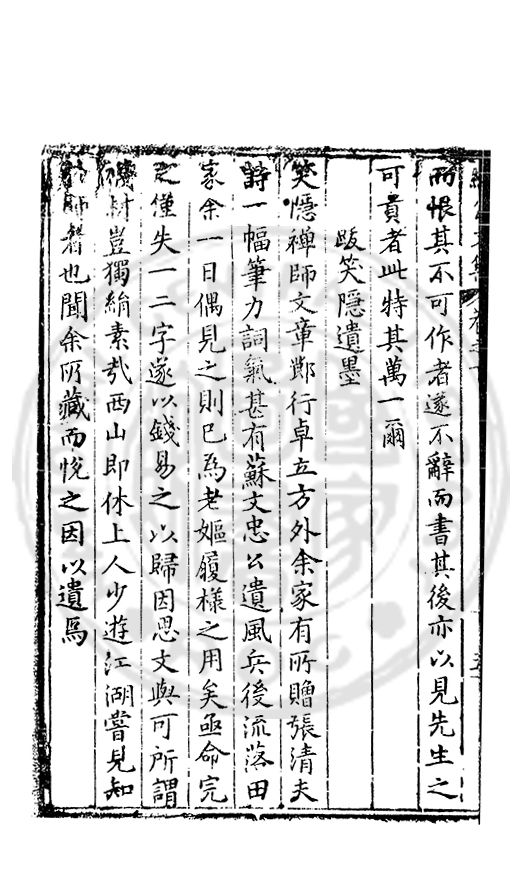 而恨其不可作者遂不辭而書其後亦以見先生之
可貴者此特其萬一爾
跋笑隱遺墨
笑隱禪師文章鄭行卓立方外余家有所贈張清夫
詩一幅筆力詞氣甚有蘇文忠公遺風兵後流落田
家余一日偶見之則已為老嫗履樣之用矣亟命完
之僅失一二字遂以錢易之以歸因思文與可所謂
韈材豈獨絹素㢤西山即休上人少遊江湖嘗見知
師者也聞余所藏而悅之因以遺焉